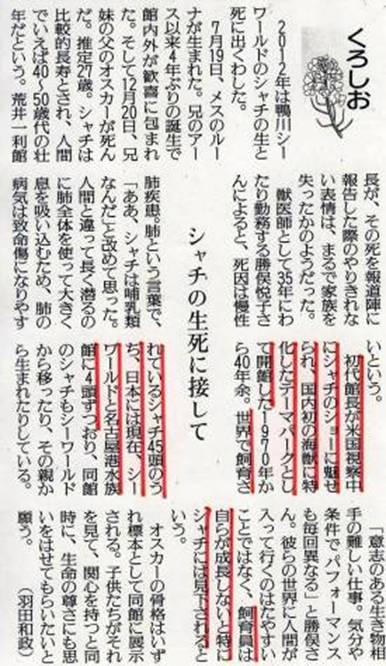 くろしお
シャチの生死に接して
２０１２年は鴨川シー
ワールドのシャチの生と
死に出くわした。
７月19日、メスのルー
ナが生まれた。兄のアー
ス以来４年ぶりの誕生で
館内外が歓喜に包まれ
た。そして12月20日、兄
妹の父のオスカーが死ん
だ。推定27歳。シャチは
比較的長寿とされ、人間
でいえば40～50歳代の壮
年だという。荒井一利館
長が、その死を報道陣に
報告した際のやりきれな
い表情は、まるで家族を
失ったかのようだった。
獣医師として35年にわ
たり勤務する勝俣悦子さ
んによると、死因は慢性
肺疾患。肺という言葉で、
「ああ、シャチは哺乳類
なんだ」と改めて思った。
人間と違って長く潜るの
に肺全体を使って大きく
息を吸い込むため、肺の
病気は致命傷になりやす
いという。
初代館長が米国視察中
にシャチのショーに魅せ
られ、国内初の海獣に特
化したテーマパークとし
て開館した１９７０年か
ら40年余。世界で飼育さ
れているシャチ45頭のう
ち、日本には現在、シー
ワールドと名古屋港水族
館に４頭ずつおり、同館
のシャチもシーワールド
から移ったり、その親か
ら生まれたりしている。
「意志のある生き物相
手の難しい仕事。気分や
条件でパフォーマンス
も毎回異なる」と勝俣さ
ん。彼らの世界に人間が
入って行くのはたやすい
ことではなく、飼育員は
自らが成長しないと特に
シャチには見下されると
いう。
オスカーの骨格はいず
れ標本として同館に展示
される。子供たちがそれ
を見て、関心を持つと同
時に、生命の尊さにも思
いをはせてもらいたいと
願う。
（羽田和政）